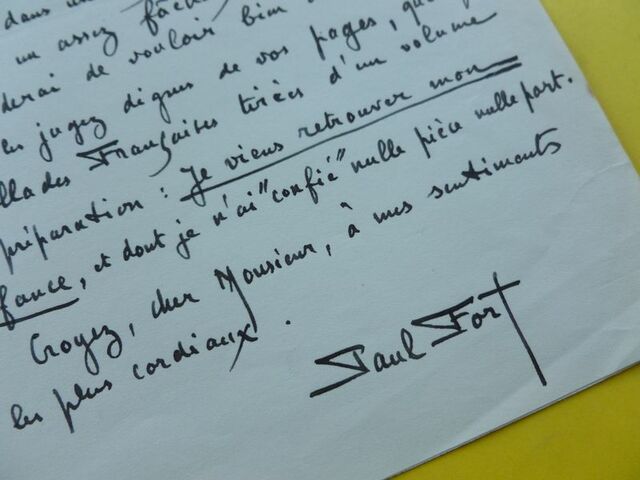 dans un
un assez fâche
derai de vouloir bien
les jugez dignes de vos pages, que
llades Françaises tirées d'un volume
préparation : Je viens retrouver mon
fance, et dont je n'ai "confié" nulle pièce nulle part.
Croyez, cher Monsieur, à mes sentiments
les plus cordiaux.
Paul Fort